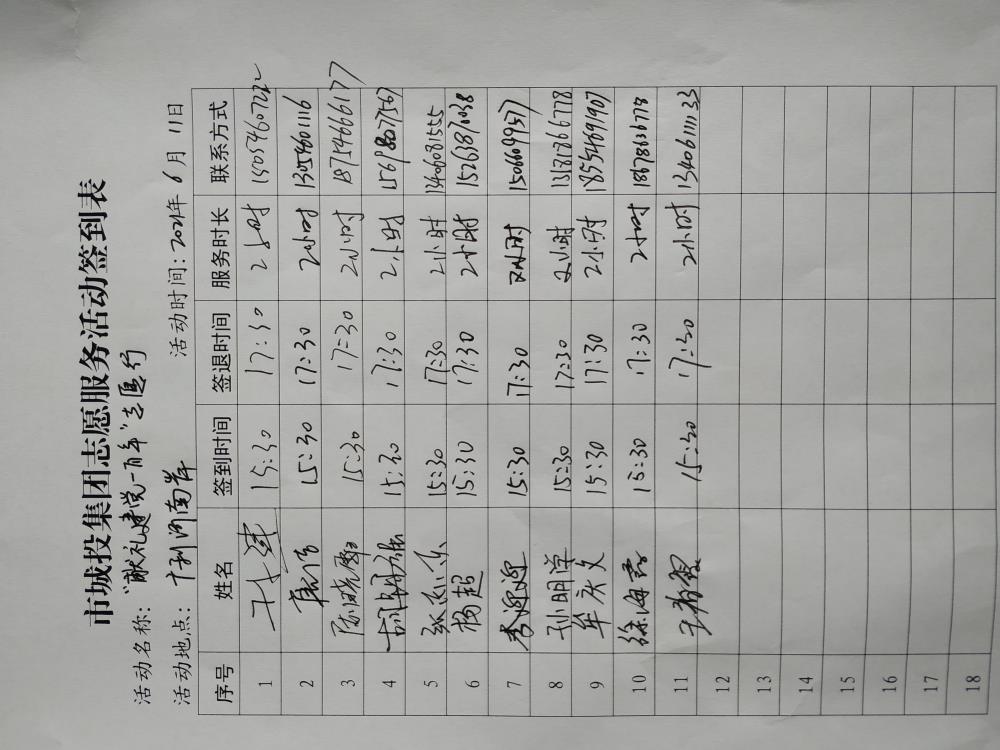 市城投集团志愿服务活动签到表
活动名称："献礼建党一百年"志愿行
活动地点：十利河南岸 活动时间：2021年6月11日
序号 姓名 签到时间 签退时间 服务时长 联系方式
1 15:30 17:30 2小时
2 15:30 17:30 2小时 13054601116
3 陈晓 15:30 17:30 2小时 18714666177
4 15:30 17:30 2小时 15698807567
5 15:30 17:30 2小时 13406081555
6 杨超 15:30 17:30 2小时 15263871038
7 李迎迎 15:30 17:30 2小时 15066099577
8 孙明学 15:30 17:30 2小时 13181866778
9 牟庆文 15:30 17:30 2小时 18554691907
10 徐海霞 15:30 17:30 2小时 18678636778
11 15:30 17:30 2小时 13406111133
12
13
14
15
16
17
18